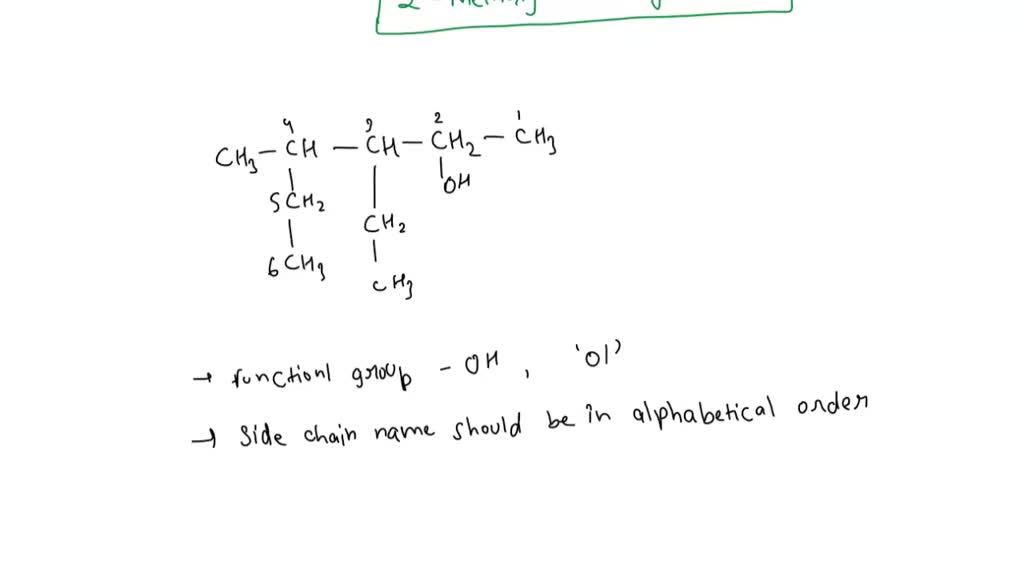 2-
4 3 2 1
CH3 - CH - CH - CH2 - CH3
5CH2 CH2 OH
6CH3 CH3
→ functionl group - OH, 'ol'
→ side chain name should be in alphabetical order